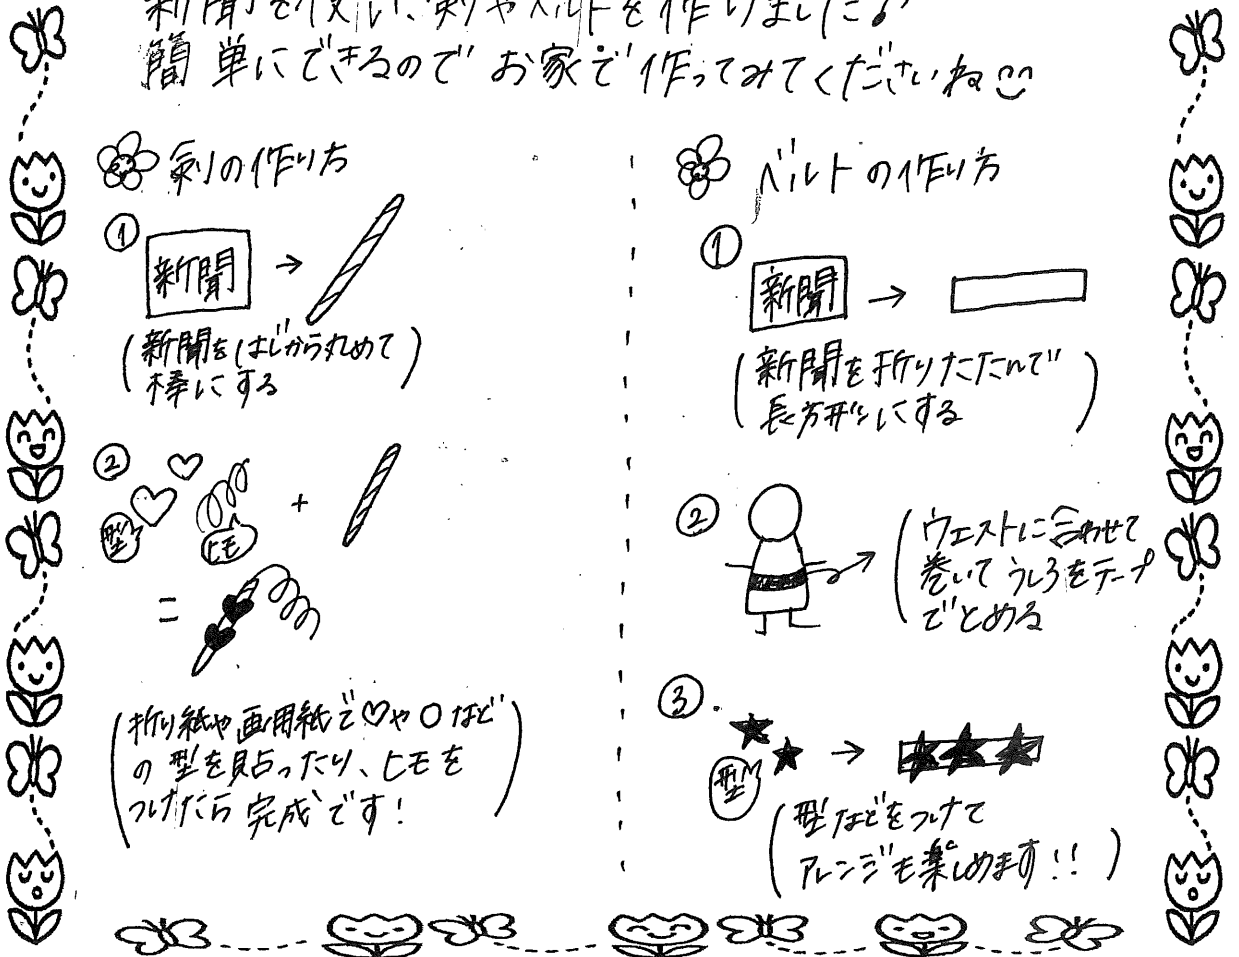 新聞を使い、剣やベルトを作りました♪
簡単にできるので お家で作ってみてくださいね
剣の作り方
①
新聞
(新聞をはじから丸めて
棒にする)
②
型
ヒモ
+
=
(折り紙や画用紙で♡や○など
の型を貼ったり、ヒモを
つけたら完成です!)
ベルトの作り方
①
新聞
(新聞を折りたたんで
長方形にする)
②
(ウエストに合わせて
巻いてうしろをテープ
でとめる)
③
型
(型などをつけて
アレンジも楽しめます!!)